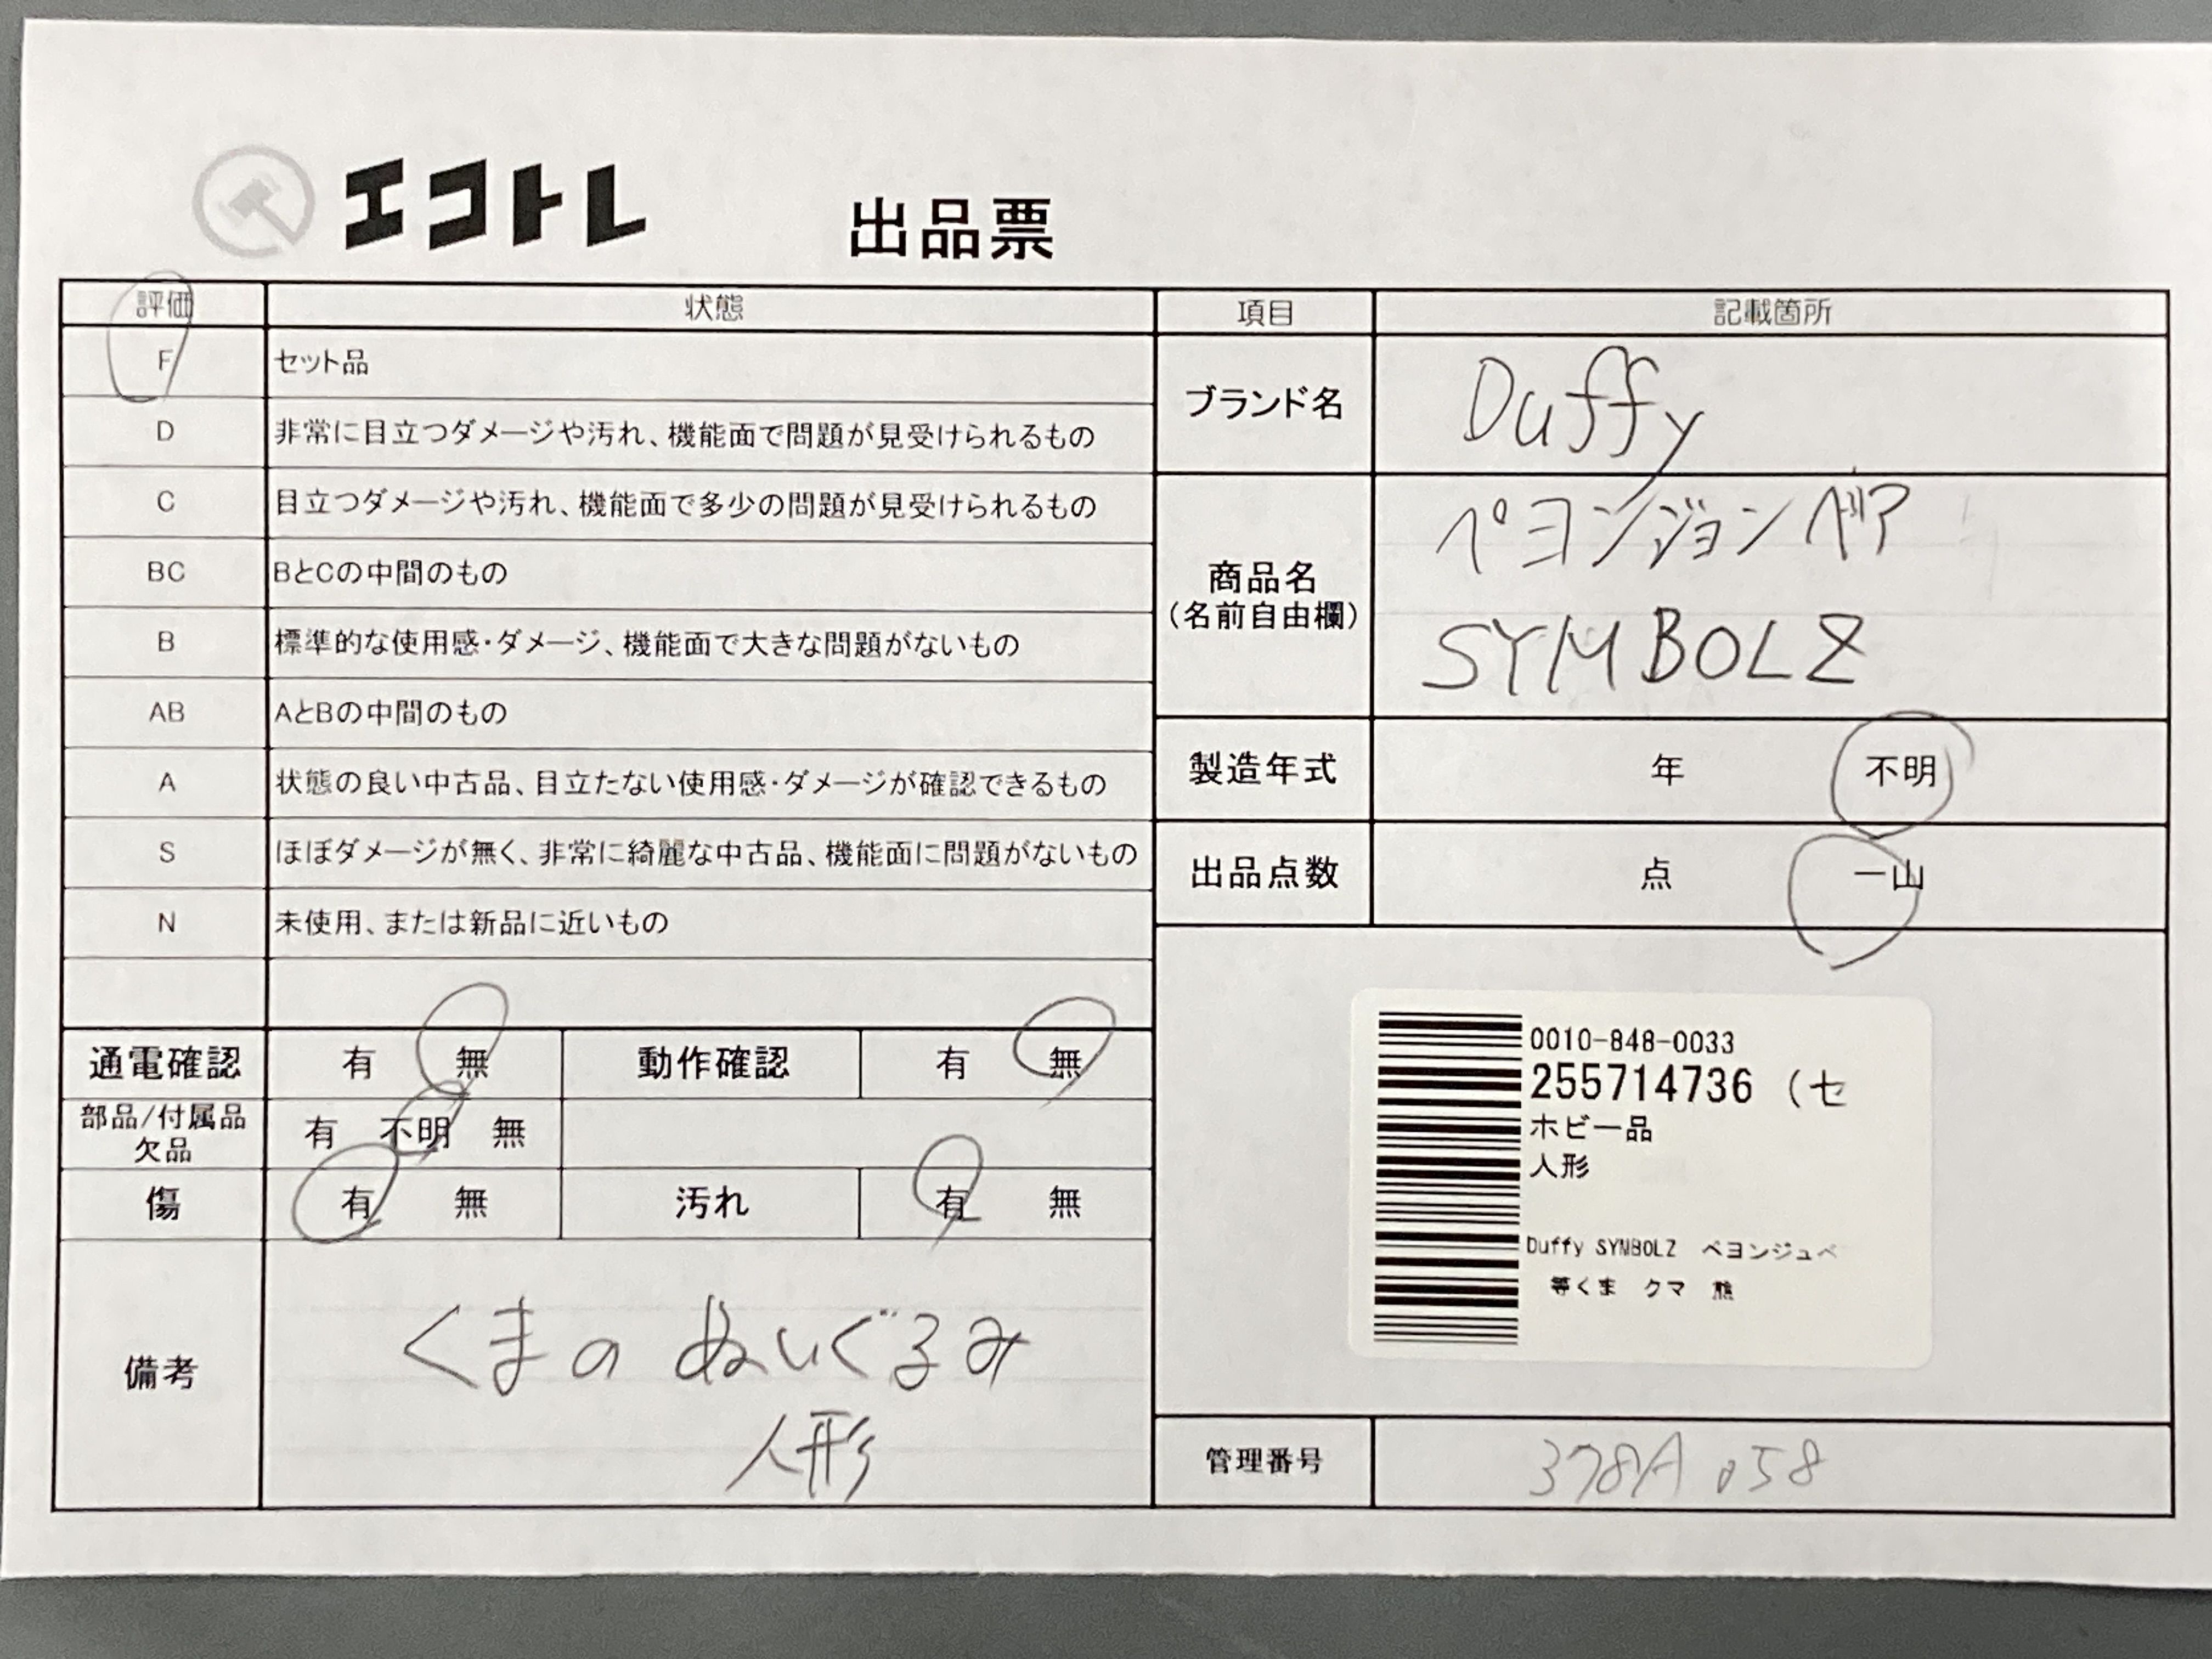 エコトレ 出品票
評価 状態
F セット品
D 非常に目立つダメージや汚れ、機能面で問題が見受けられるもの
C 目立つダメージや汚れ、機能面で多少の問題が見受けられるもの
BC BとCの中間のもの
B 標準的な使用感・ダメージ、機能面で大きな問題がないもの
AB AとBの中間のもの
A 状態の良い中古品、目立たない使用感・ダメージが確認できるもの
S ほぼダメージが無く、非常に綺麗な中古品、機能面に問題がないもの
N 未使用、または新品に近いもの
通電確認 有 無 動作確認 有 無
部品/付属品 有 不明 無
欠品
傷 有 無 汚れ 有 無
備考 くまの ぬいぐるみ
人形
項目 記載箇所
ブランド名 Duffy
商品名 ペヨンジョンベア
(名前自由欄) SYMBOLZ
製造年式 年 不明
出品点数 点 一山
0010-848-0033
255714736 (セ
ホビー品
人形
Duffy SYMBOLZ ペヨンジュベ
等くま クマ 熊
管理番号 378A 058